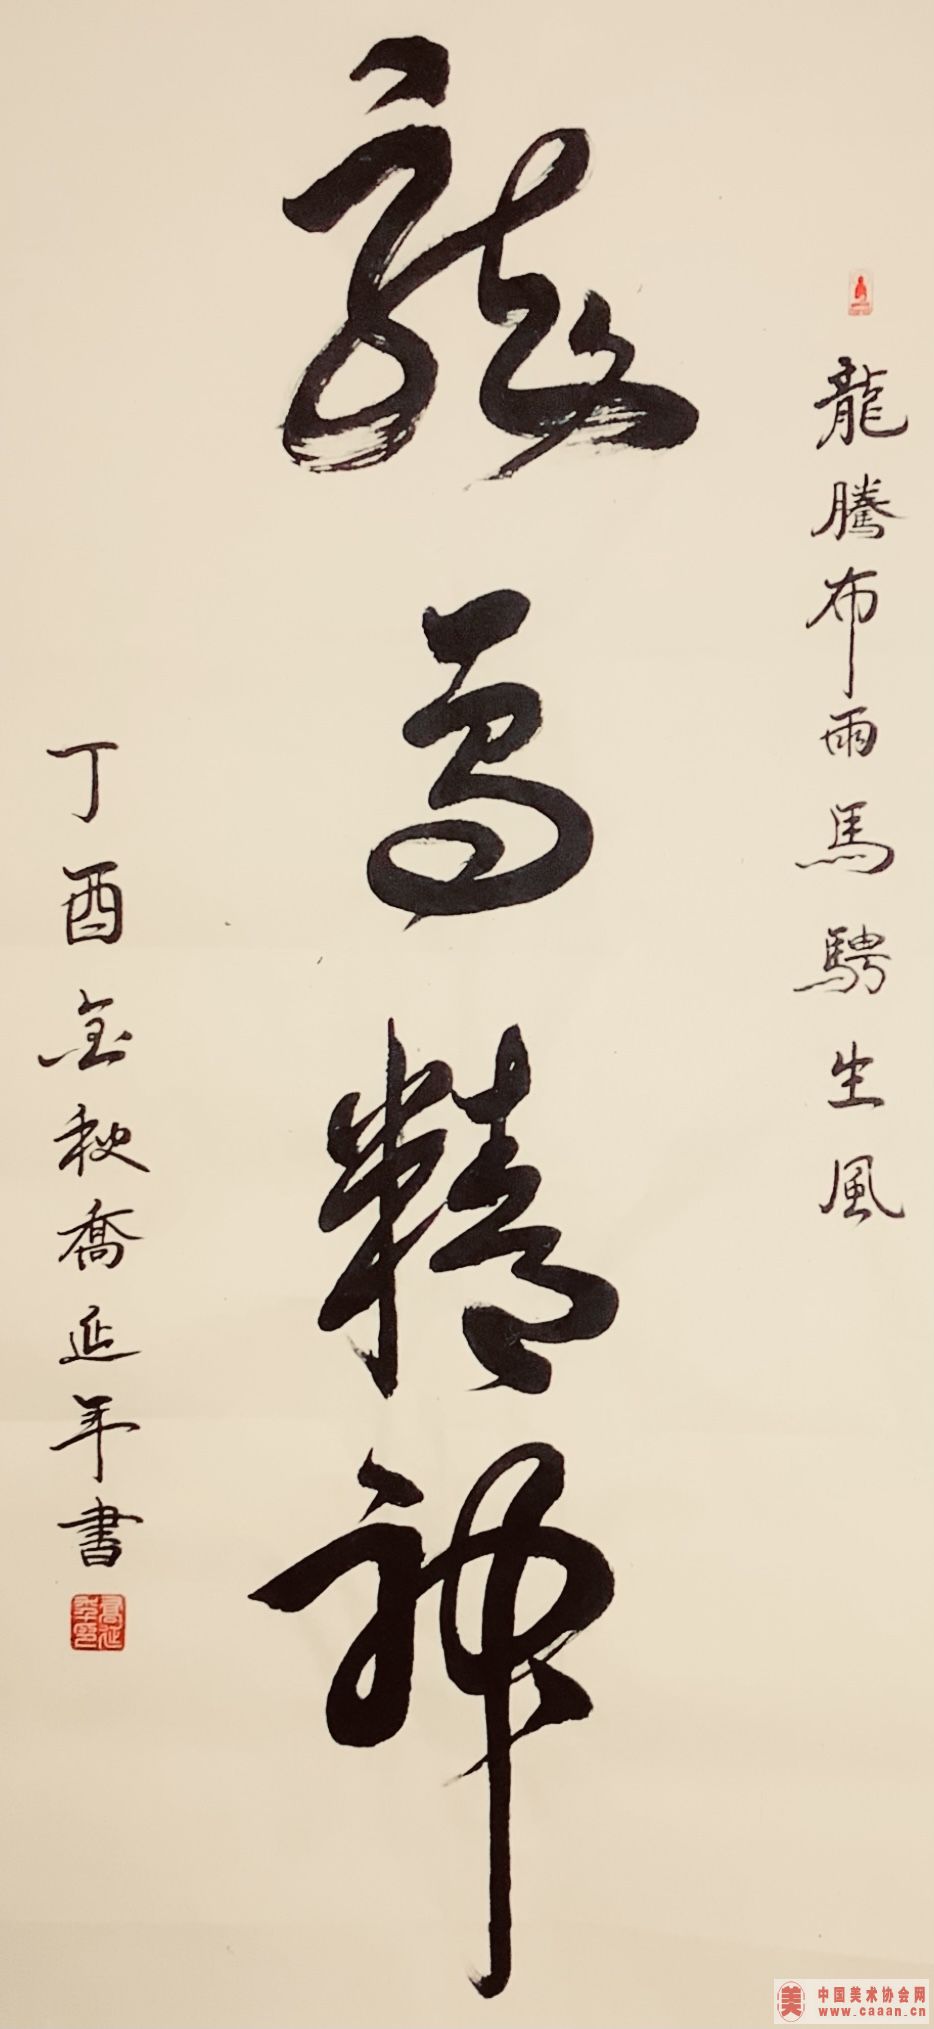 龍騰布雨馬騁生風
龍馬精神
丁酉金秋喬延年書
喬延年印
美 中国美术协会网
www.caaan.cn